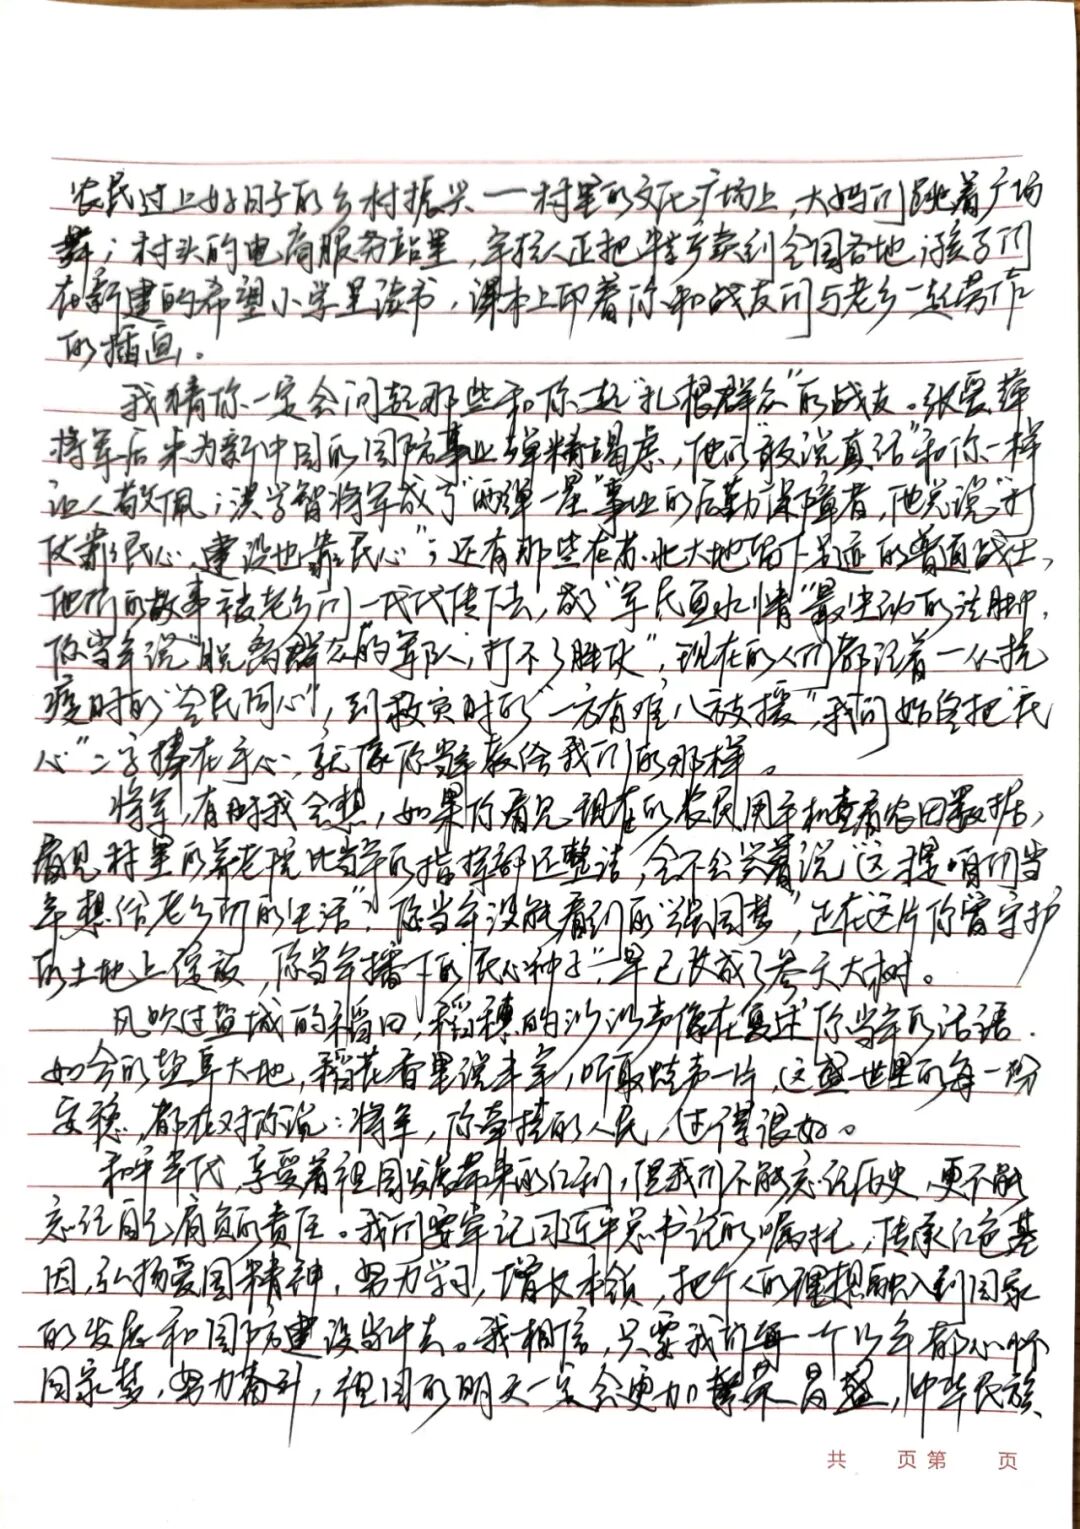 农民过上好日子的乡村振兴——村里的文化广场上，大妈们跳着广场
舞；村头的电商服务站里，年轻人正把特产卖到全国各地；孩子们
在新建的希望小学里读书，课本上印着你和战友们与老乡一起劳作
的插画。
我猜你一定会问起那些和你一起“扎根群众”的战友。张爱萍
将军后来为新中国的国防事业殚精竭虑，他的“敢说真话”和你一样
让人敬佩；洪学智将军成了“两弹一星”事业的后勤保障者，他总说“打
仗靠民心，建设也靠民心”；还有那些在苏北大地留下足迹的普通战士，
他们的故事被老乡们一代代传下去，成了“军民鱼水情”最生动的注脚。
你当年说“脱离群众的军队，打不了胜仗”，现在的人们都记着——从抗
疫时的“全民同心”，到救灾时的“一方有难八方支援”，我们始终把“民
心”二字捧在手心，就像你当年教给我们的那样。
将军，有时我会想，如果你看见现在的农民用手机查看农田数据，
看见村里的养老院比当年的指挥部还整洁，会不会笑着说“这才是咱们当
年想给老乡们的生活”？你当年没能看到的“强国梦”，正在这片你曾守护
的土地上绽放，你当年播下的“民心种子”，早已长成了参天大树。
风吹过盐城的稻田，稻穗的沙沙声像在复述你当年的话语。
如今的盐阜大地，稻花香里说丰年，听取蛙声一片，这盛世里的每一份
安稳，都在对你说：将军，你牵挂的人民，过得很好。
和平年代，享受着祖国发展带来的红利，但我们不能忘记历史，更不能
忘记自己肩负的责任。我们要牢记习近平总书记的嘱托，传承红色基
因，弘扬爱国精神，努力学习，增长本领，把个人的理想融入到国家
的发展和国防建设当中去。我相信，只要我们每一个少年都心怀
国家梦，努力奋斗，祖国的明天一定会更加繁荣昌盛，中华民族
共 页第 页